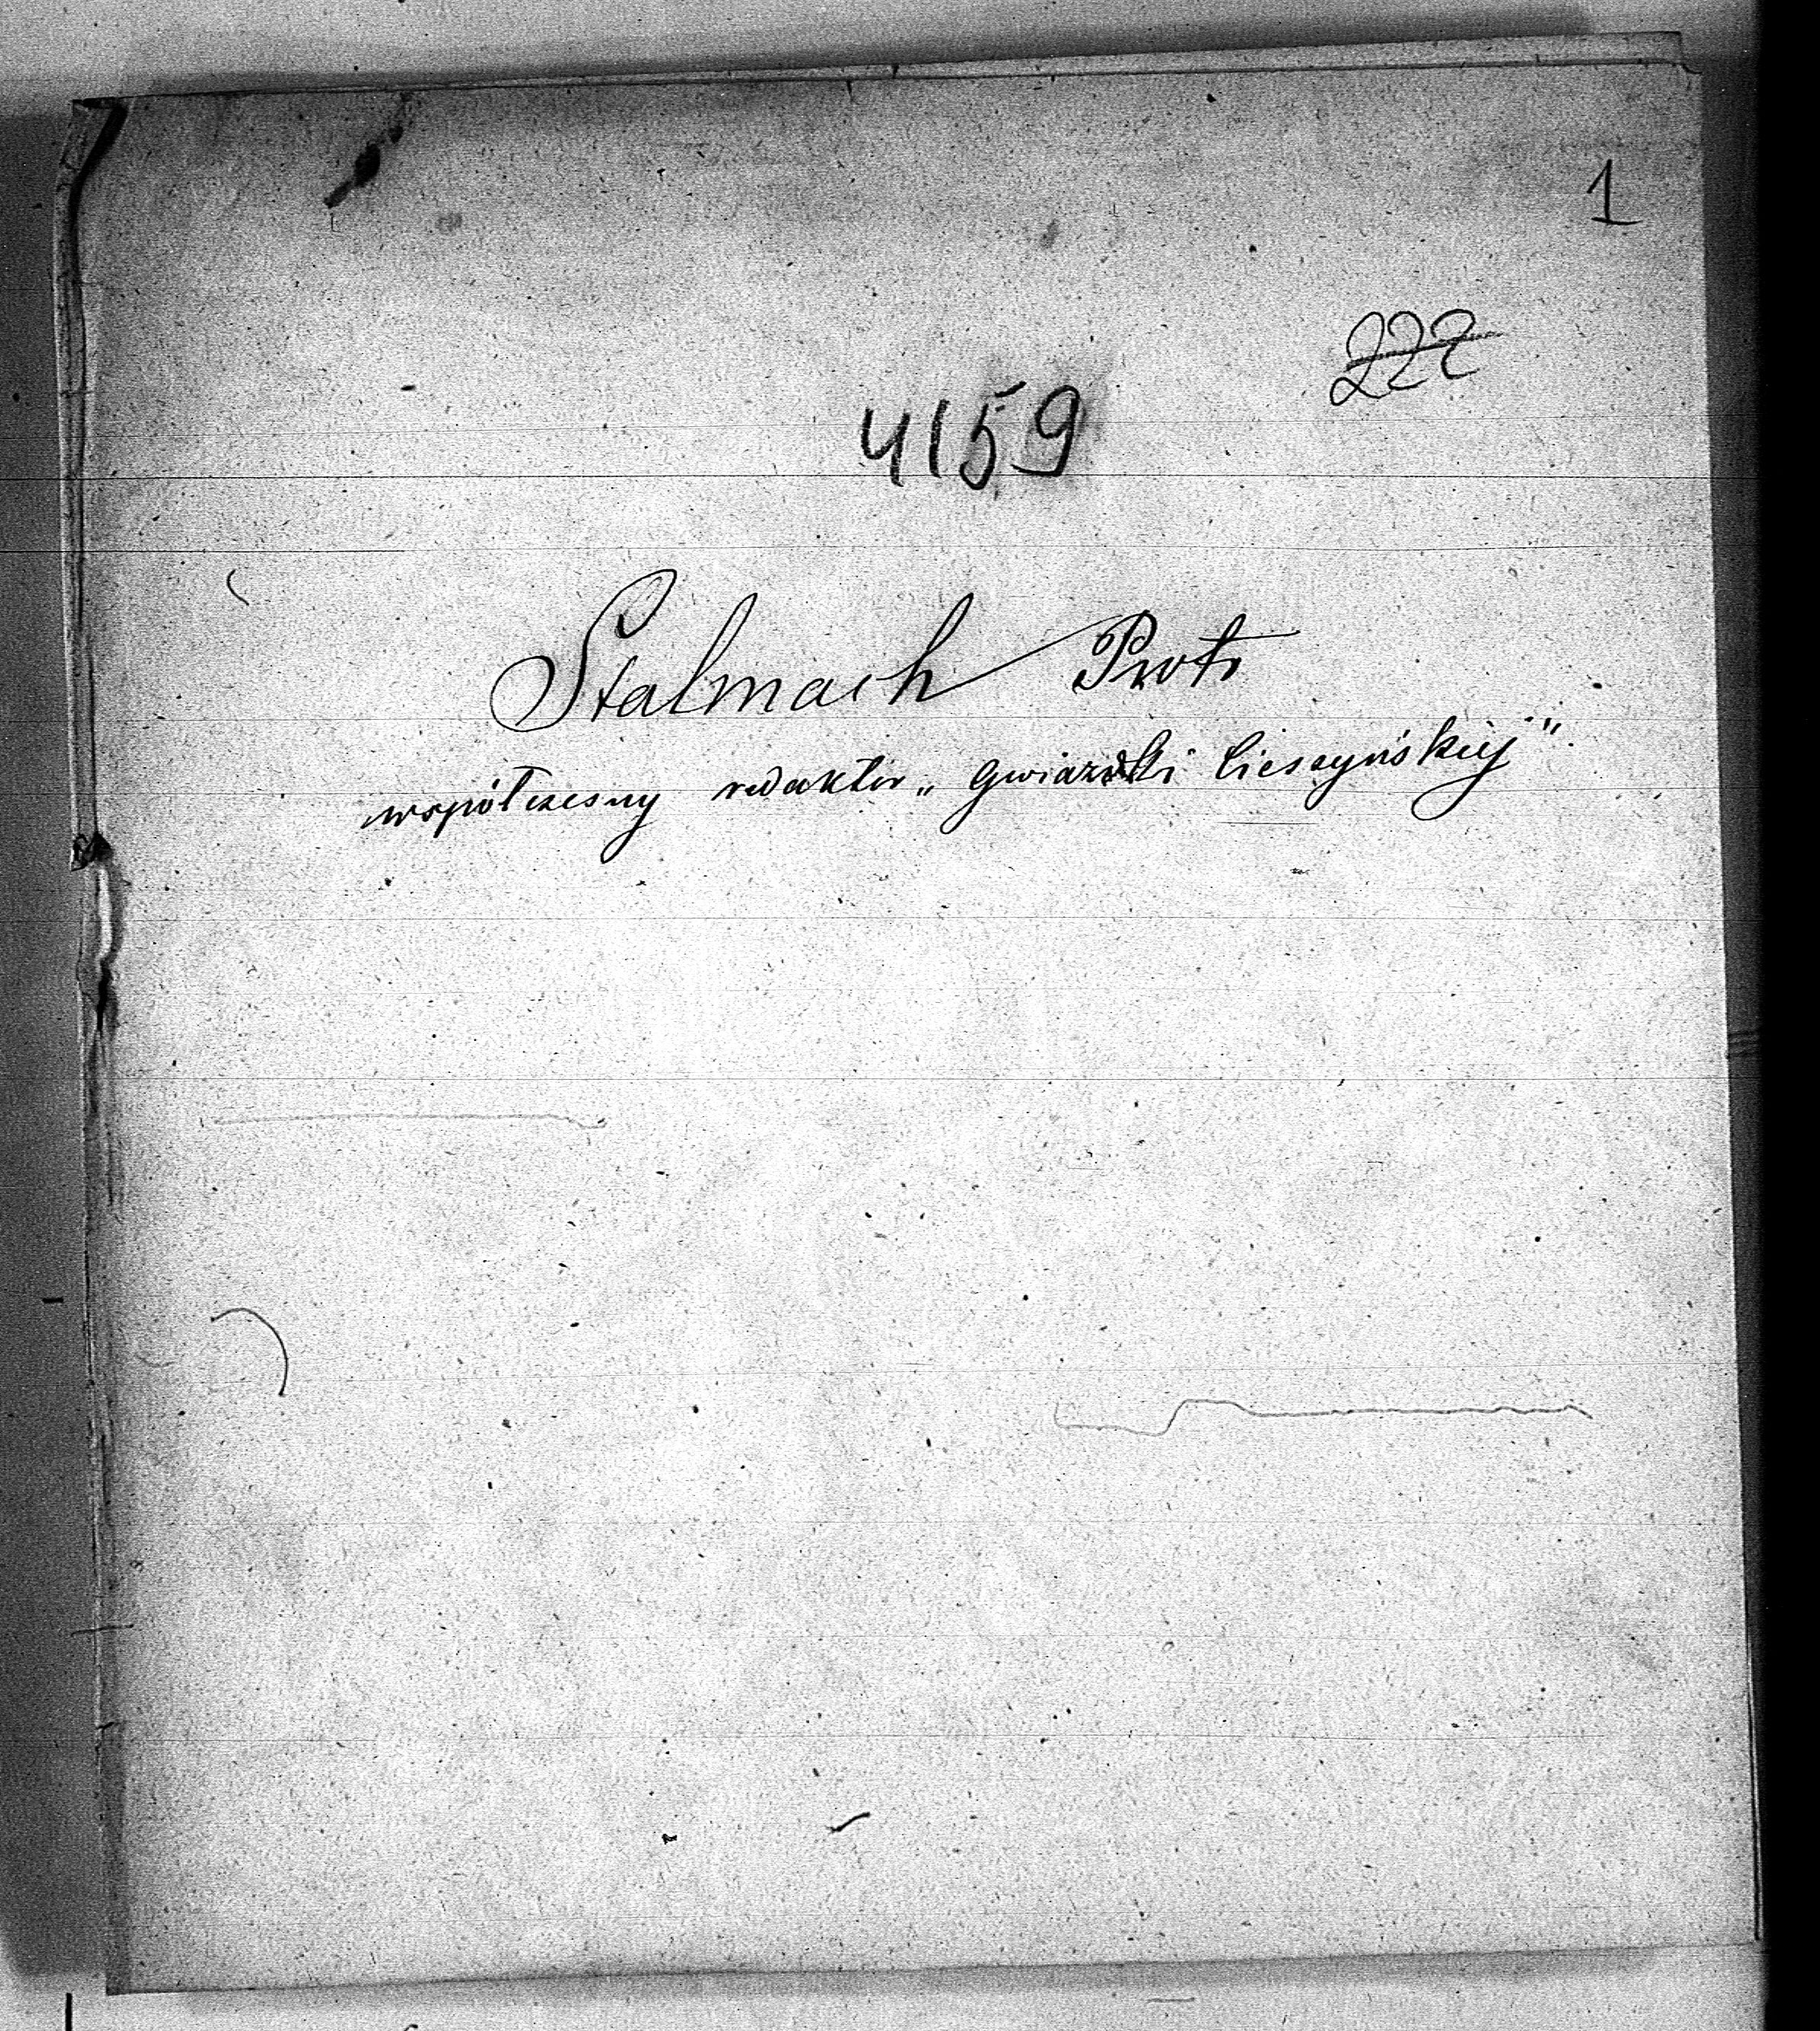 1
222
4159
Stalmach Piotr
współczesny redaktor „Gwiazdki Cieszyńskiej".